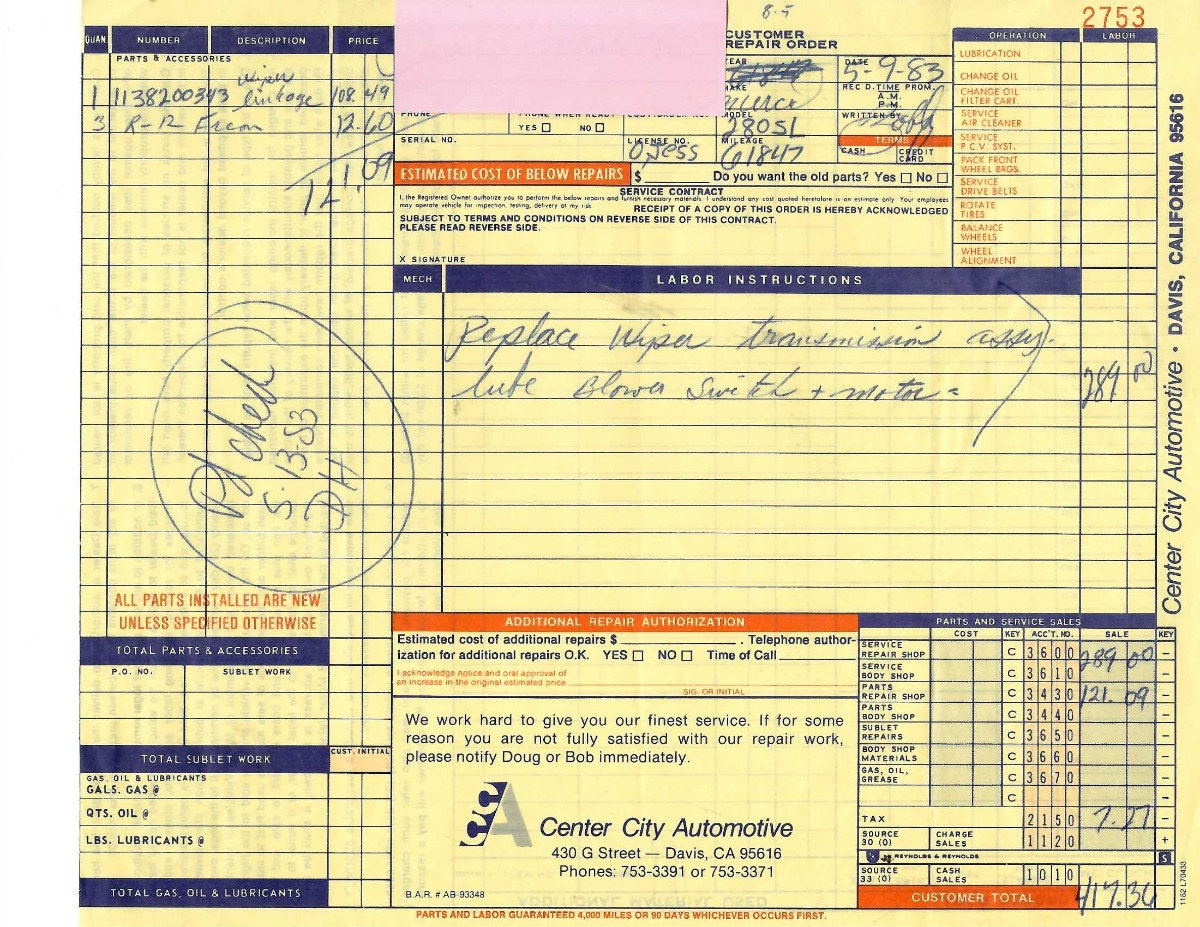 8-5
2753
CUSTOMER
REPAIR ORDER
QUAN. NUMBER DESCRIPTION PRICE
PARTS & ACCESSORIES
1 1138200343 Wiper linkage 108.49
3 R-12 Freon 12.60
121.09
YEAR
MAKE
Merce
MODEL
280SL
DATE
5-9-83
REC'D. TIME PROM.
A.M.
P.M.
WRITTEN BY
TERMS
CASH CREDIT CARD
PHONE
PHONE WHEN READY
YES NO
SERIAL NO.
LICENSE NO.
MILEAGE
61847
ESTIMATED COST OF BELOW REPAIRS $ Do you want the old parts? Yes No
SERVICE CONTRACT
I, the Registered Owner authorize you to perform the below repairs and furnish necessary materials. I understand any cost quoted heretofore is an estimate only. Your employees
may operate vehicle for inspection, testing, delivery at my risk. RECEIPT OF A COPY OF THIS ORDER IS HEREBY ACKNOWLEDGED
SUBJECT TO TERMS AND CONDITIONS ON REVERSE SIDE OF THIS CONTRACT.
PLEASE READ REVERSE SIDE.
X SIGNATURE
OPERATION LABOR
LUBRICATION
CHANGE OIL
CHANGE OIL
FILTER CART.
SERVICE
AIR CLEANER
SERVICE
P.C.V. SYST.
PACK FRONT
WHEEL BRGS.
SERVICE
DRIVE BELTS
ROTATE
TIRES
BALANCE
WHEELS
WHEEL
ALIGNMENT
MECH LABOR INSTRUCTIONS
Replace Wiper transmission assy.
lube Blower Switch + motor = 289.00
Pd check
5-13-83
DH
Center City Automotive • DAVIS, CALIFORNIA 95616
ALL PARTS INSTALLED ARE NEW
UNLESS SPECIFIED OTHERWISE
TOTAL PARTS & ACCESSORIES
P.O. NO. SUBLET WORK
TOTAL SUBLET WORK
CUST. INITIAL
GAS, OIL & LUBRICANTS
GALS. GAS @
QTS. OIL @
LBS. LUBRICANTS @
TOTAL GAS, OIL & LUBRICANTS
ADDITIONAL REPAIR AUTHORIZATION
Estimated cost of additional repairs $ . Telephone author-
ization for additional repairs O.K. YES NO Time of Call
I acknowledge notice and oral approval of
an increase in the original estimated price
SIG. OR INITIAL
We work hard to give you our finest service. If for some
reason you are not fully satisfied with our repair work,
please notify Doug or Bob immediately.
CCA
Center City Automotive
430 G Street — Davis, CA 95616
Phones: 753-3391 or 753-3371
B.A.R. # AB-93348
PARTS AND SERVICE SALES
COST KEY ACC'T. NO. SALE KEY
SERVICE REPAIR SHOP C 3600 289 00 –
SERVICE BODY SHOP C 3610 –
PARTS REPAIR SHOP C 3430 121.09 –
PARTS BODY SHOP C 3440 –
SUBLET REPAIRS C 3650 –
BODY SHOP MATERIALS C 3660 –
GAS, OIL, GREASE C 3670 –
C –
TAX 2150 7.27 –
SOURCE 30 (0) CHARGE SALES 1120 +
REYNOLDS & REYNOLDS S
SOURCE 33 (0) CASH SALES 1010
CUSTOMER TOTAL 417.36
1182 L70433
PARTS AND LABOR GUARANTEED 4,000 MILES OR 90 DAYS WHICHEVER OCCURS FIRST.